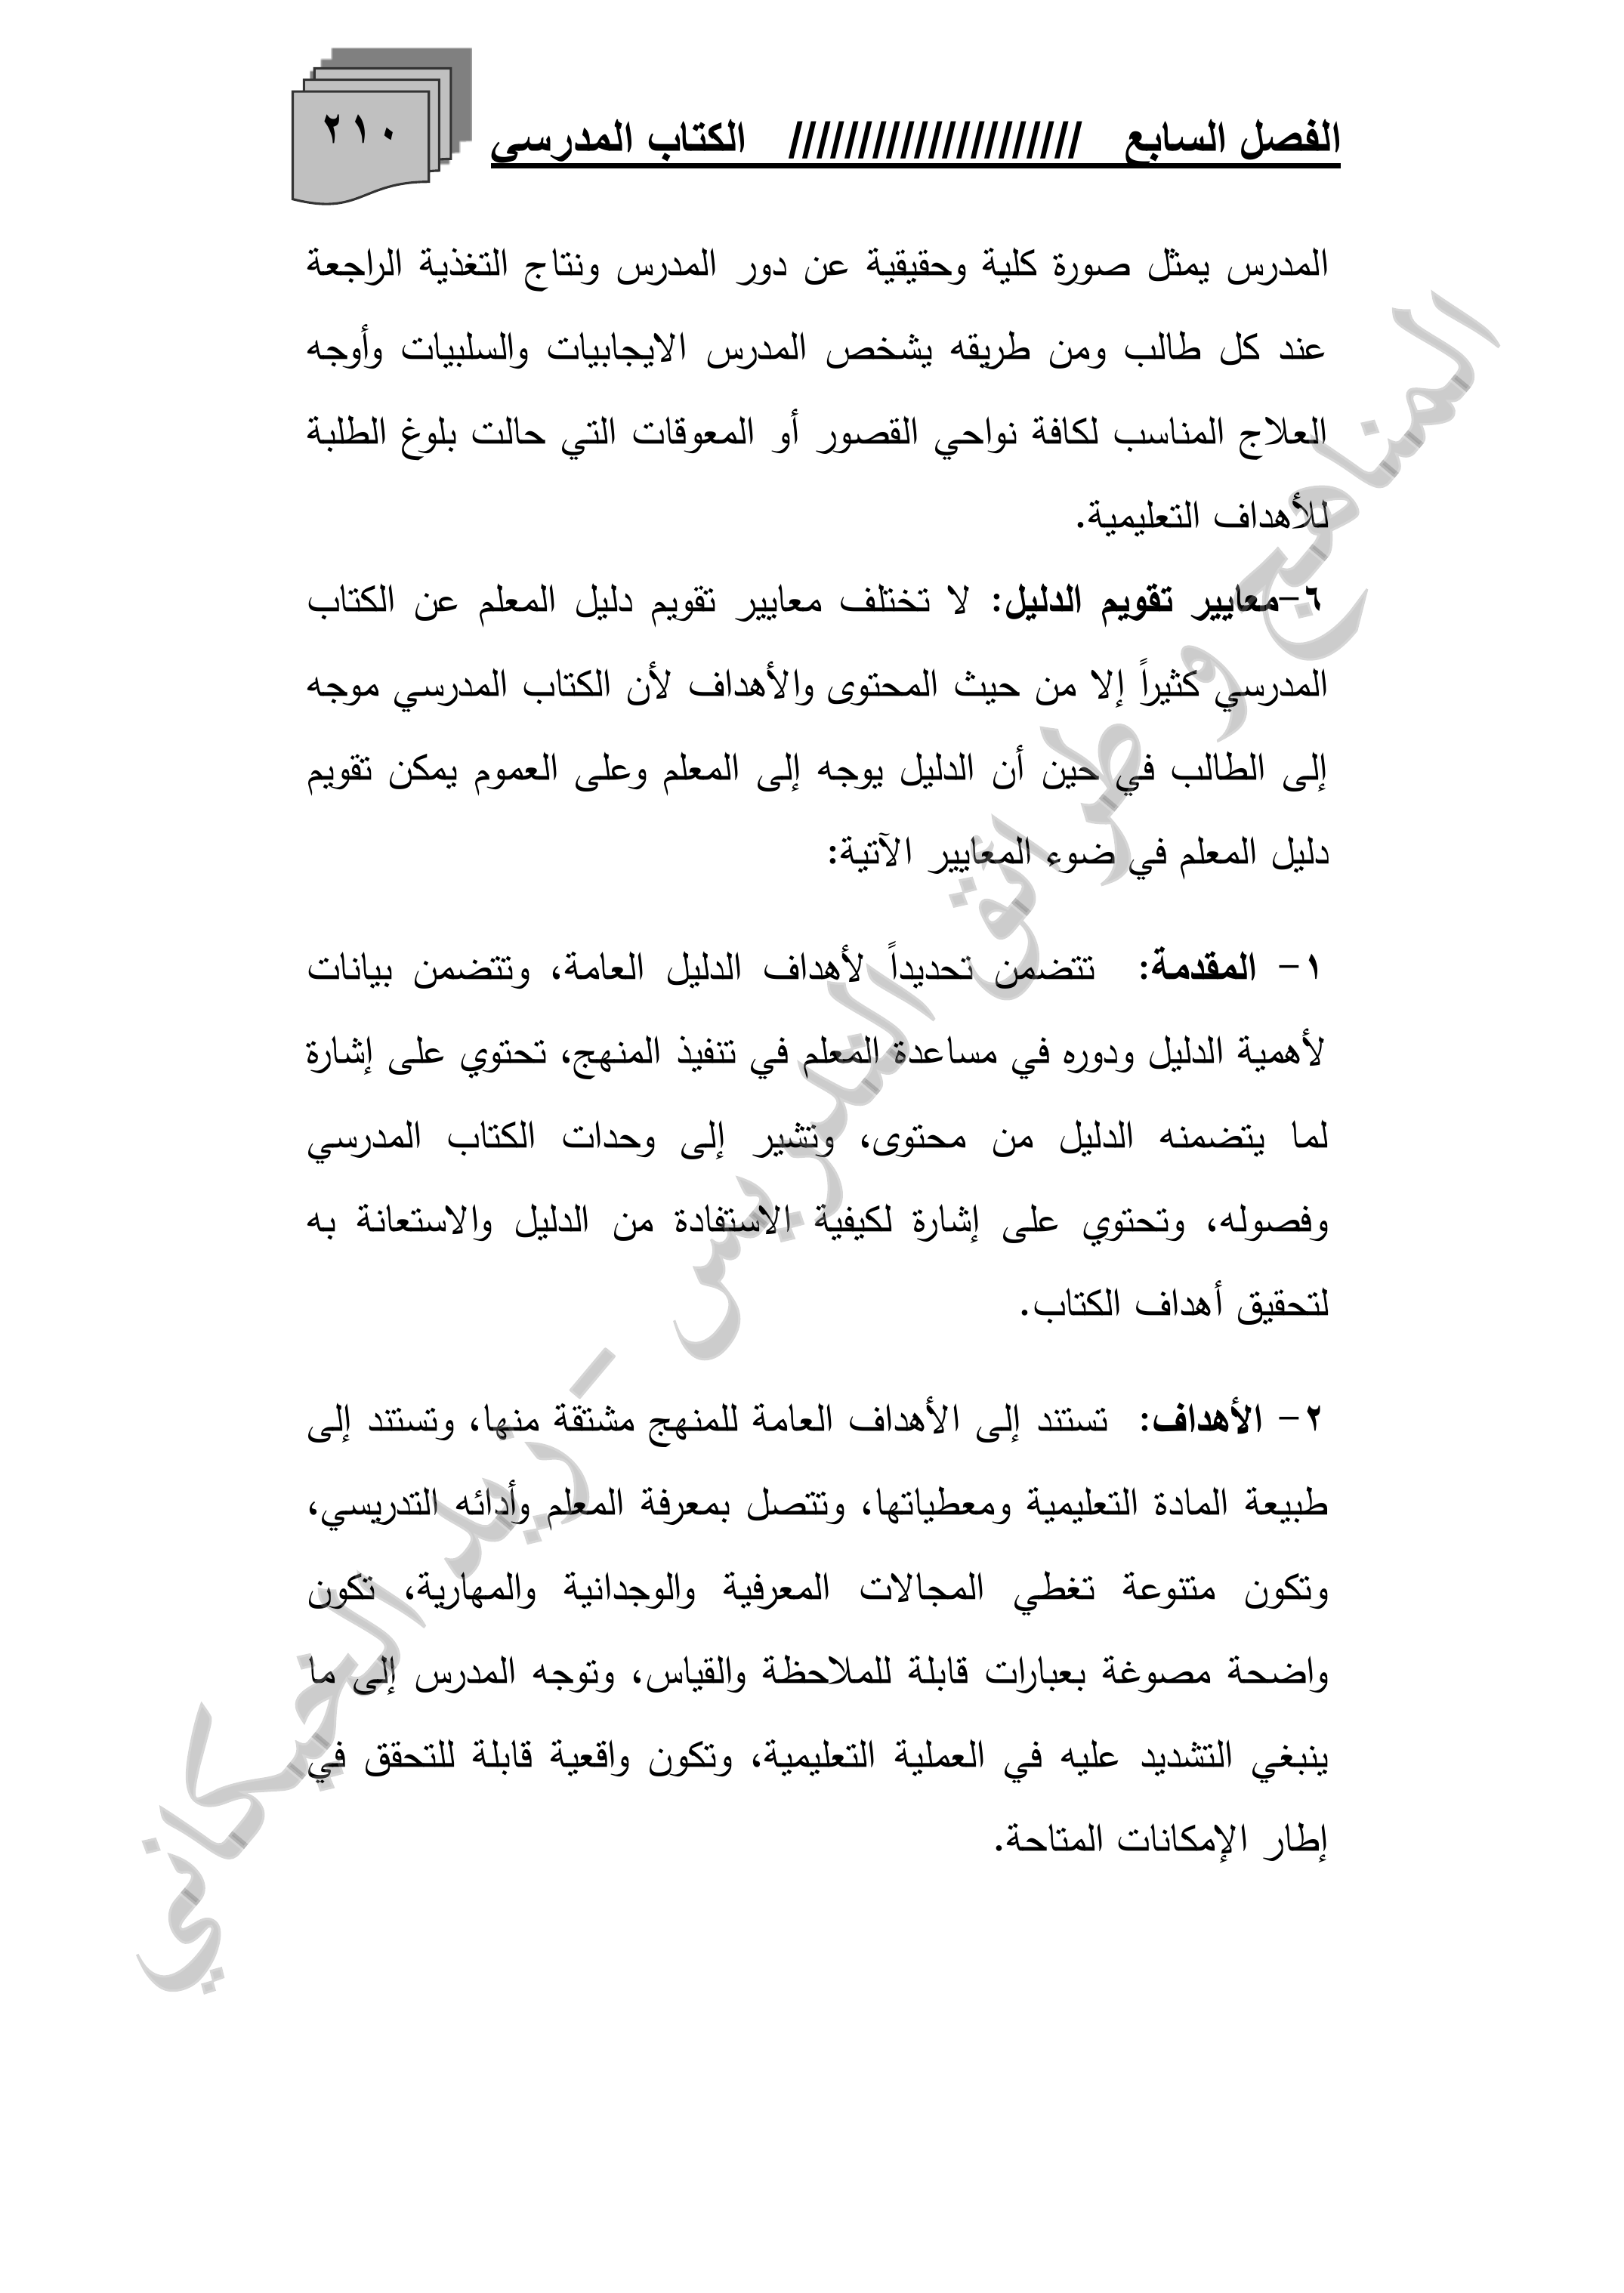 الفصل السابع ///////////////////// الكتاب المدرسي
٢١٠
المدرس يمثل صورة كلية وحقيقية عن دور المدرس ونتاج التغذية الراجعة
عند كل طالب ومن طريقه يشخص المدرس الايجابيات والسلبيات وأوجه
العلاج المناسب لكافة نواحي القصور أو المعوقات التي حالت بلوغ الطلبة
للأهداف التعليمية.
٦-معايير تقويم الدليل: لا تختلف معايير تقويم دليل المعلم عن الكتاب
المدرسي كثيراً إلا من حيث المحتوى والأهداف لأن الكتاب المدرسي موجه
إلى الطالب في حين أن الدليل يوجه إلى المعلم وعلى العموم يمكن تقويم
دليل المعلم في ضوء المعايير الآتية:
١- المقدمة: تتضمن تحديداً لأهداف الدليل العامة، وتتضمن بيانات
لأهمية الدليل ودوره في مساعدة المعلم في تنفيذ المنهج، تحتوي على إشارة
لما يتضمنه الدليل من محتوى، وتشير إلى وحدات الكتاب المدرسي
وفصوله، وتحتوي على إشارة لكيفية الاستفادة من الدليل والاستعانة به
لتحقيق أهداف الكتاب.
٢- الأهداف: تستند إلى الأهداف العامة للمنهج مشتقة منها، وتستند إلى
طبيعة المادة التعليمية ومعطياتها، وتتصل بمعرفة المعلم وأدائه التدريسي،
وتكون متنوعة تغطي المجالات المعرفية والوجدانية والمهارية، تكون
واضحة مصوغة بعبارات قابلة للملاحظة والقياس، وتوجه المدرس إلى ما
ينبغي التشديد عليه في العملية التعليمية، وتكون واقعية قابلة للتحقق في
إطار الإمكانات المتاحة.
المناهج و طرائق التدريس - زيد الخيكاني